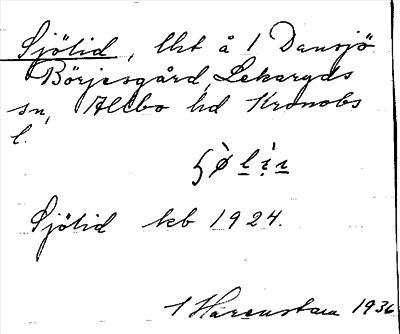 Sjölid, lht å 1 Dansjö
Börjesgård, Lekaryds
sn, Allbo hd Kronobs
l.
Sjölid kb 1924.
1936